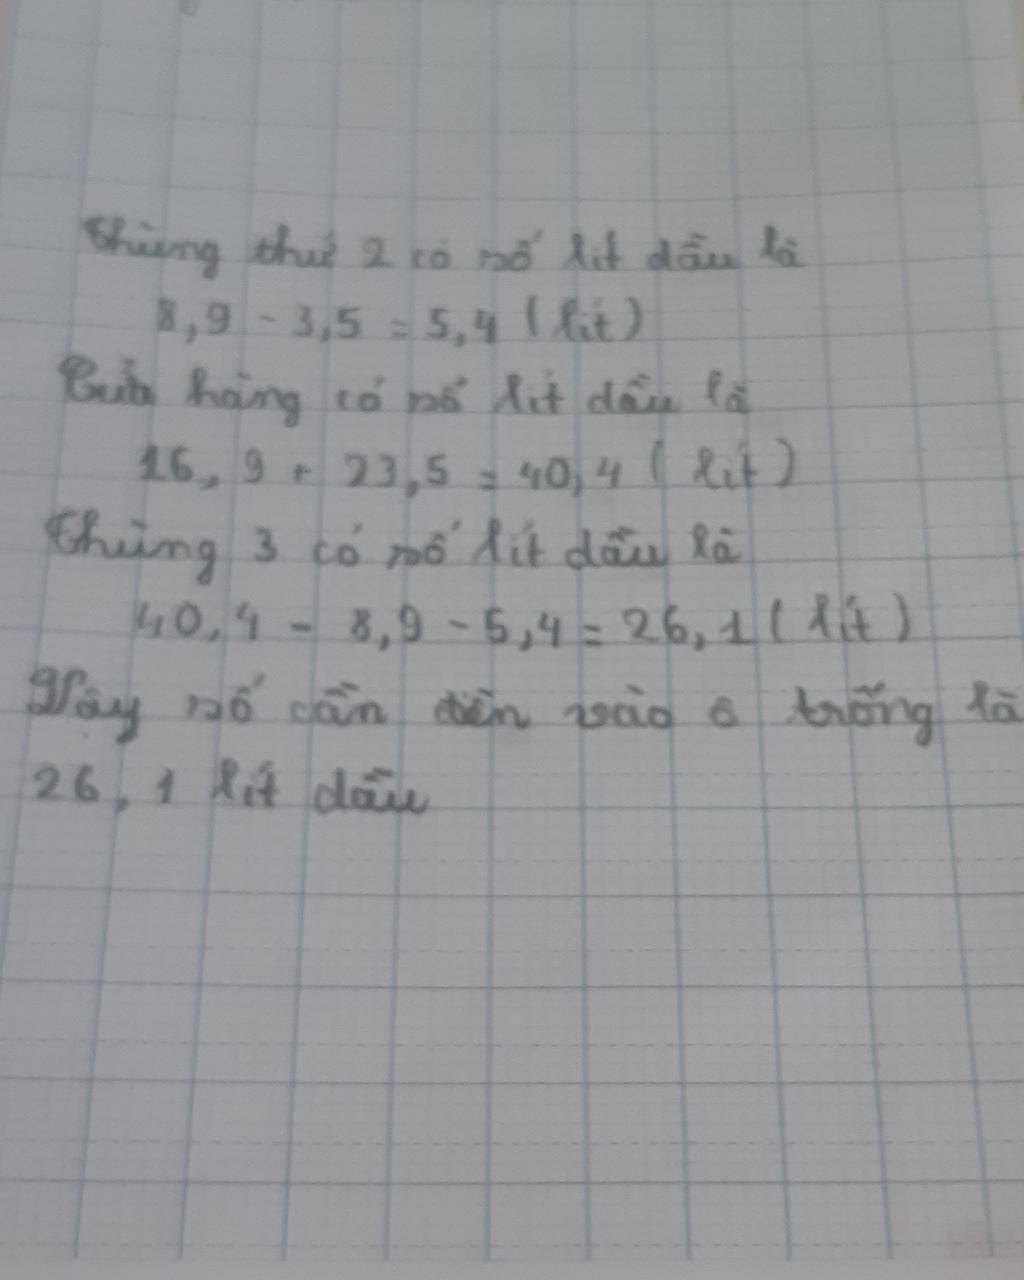 Thùng thứ 2 có số lít dầu là
8,9 - 3,5 = 5,4 (lít)
Cửa hàng có số lít dầu là
16,9 + 23,5 = 40,4 (lít)
Thùng 3 có số lít dầu là
40,4 - 8,9 - 5,4 = 26,1 (lít)
Vậy số cần điền vào ô trống là
26,1 lít dầu